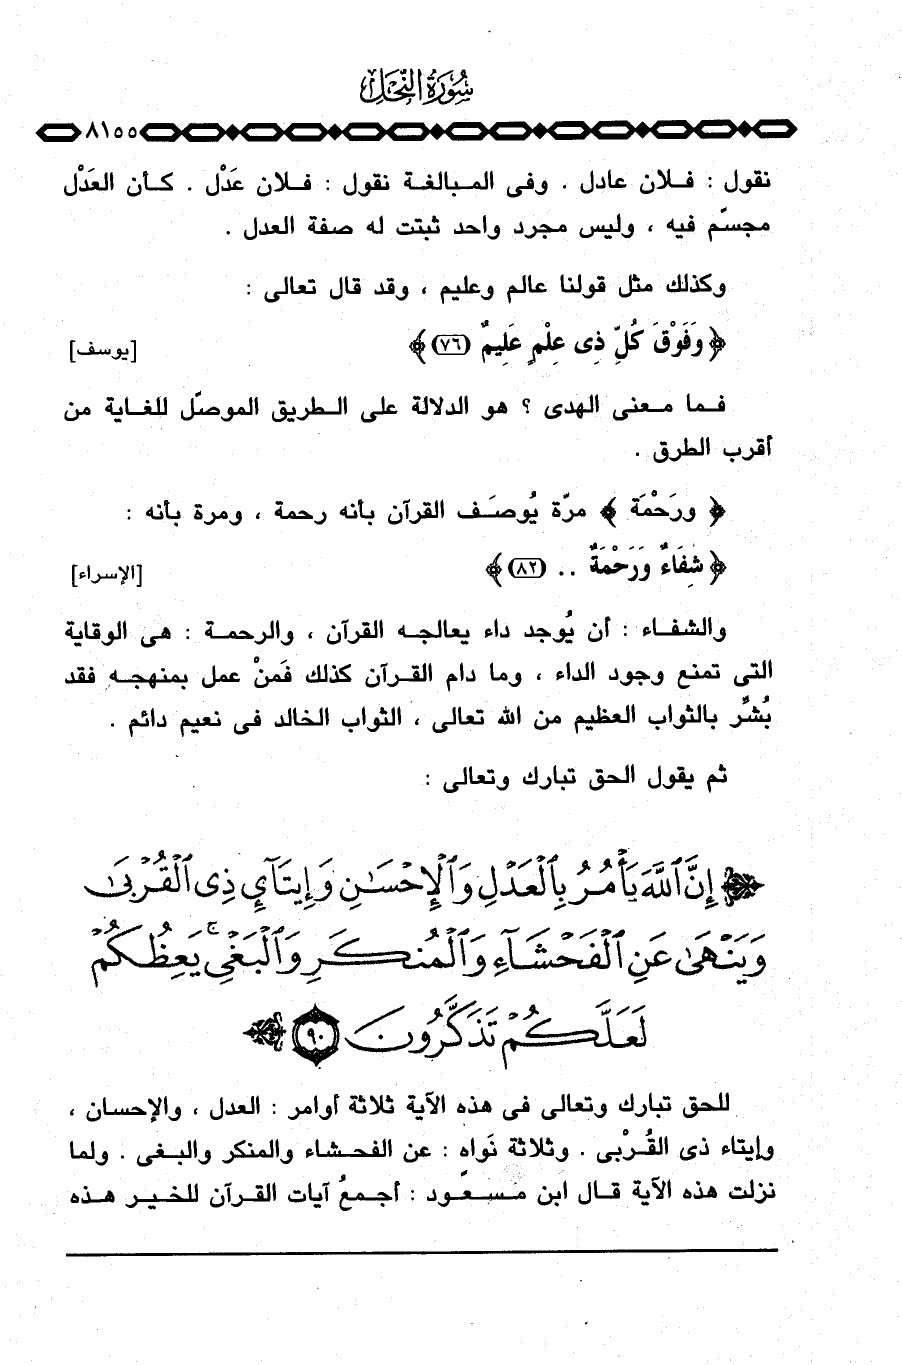 سُورَةُ النَّحْلِ
٨١٥٥
نقول : فلان عادل . وفى المبالغة نقول : فلان عَدْل . كأن العَدْل
مجسّم فيه ، وليس مجرد واحد ثبتت له صفة العدل .
وكذلك مثل قولنا عالم وعليم ، وقد قال تعالى :
﴿ وَفَوْقَ كُلِّ ذِى عِلْمٍ عَلِيمٌ (٧٦) ﴾ [يوسف]
فما معنى الهدى ؟ هو الدلالة على الطريق الموصّل للغاية من
أقرب الطرق .
﴿ ورَحْمَة ﴾ مرّة يُوصَف القرآن بأنه رحمة ، ومرة بأنه :
﴿ شِفَاءٌ وَرَحْمَةٌ .. (٨٢) ﴾ [الإسراء]
والشفاء : أن يُوجد داء يعالجه القرآن ، والرحمة : هى الوقاية
التى تمنع وجود الداء ، وما دام القرآن كذلك فَمَنْ عمل بمنهجه فقد
بُشِّر بالثواب العظيم من الله تعالى ، الثواب الخالد فى نعيم دائم .
ثم يقول الحق تبارك وتعالى :
﴿ إِنَّ ٱللَّهَ يَأْمُرُ بِٱلْعَدْلِ وَٱلْإِحْسَٰنِ وَإِيتَآئِ ذِى ٱلْقُرْبَىٰ
وَيَنْهَىٰ عَنِ ٱلْفَحْشَآءِ وَٱلْمُنكَرِ وَٱلْبَغْىِ ۚ يَعِظُكُمْ
لَعَلَّكُمْ تَذَكَّرُونَ ٩٠ ﴾
للحق تبارك وتعالى فى هذه الآية ثلاثة أوامر : العدل ، والإحسان ،
وإيتاء ذى القُرْبى . وثلاثة نَواهٍ : عن الفحشاء والمنكر والبغى . ولما
نزلت هذه الآية قال ابن مسعود : أجمعُ آيات القرآن للخير هذه